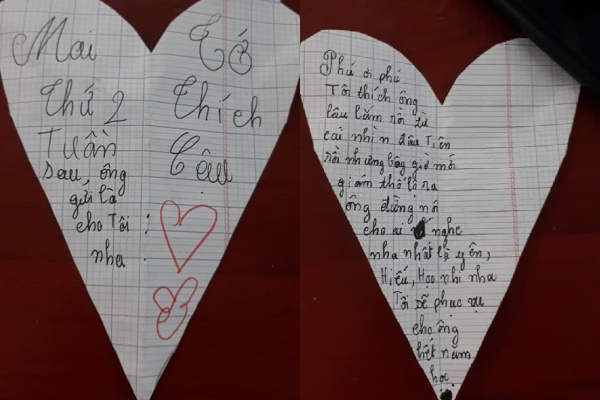 Mai
Thứ 2
Tuần
sau, ông
gửi là
cho Tôi :
nha .
Tớ
Thích
Cậu
Phú ơi phú
Tôi thích ông
lâu lắm rồi từ
cái nhìn đầu Tiên
rồi nhưng bây giờ mới
giám thổ lộ ra
ông đừng nó
cho ai nghe
nha nhất là yên,
Hiếu, Hạo nhi nha
Tôi sẽ phục vụ
cho ông
hết năm
học.